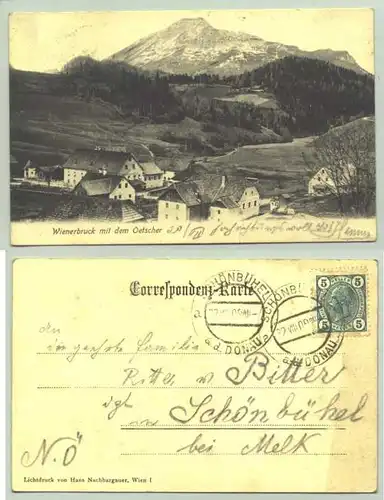 Wienerbruck mit dem Oetscher
Correspondenz-Karte
SCHÖNBÜHEL
a. d. DONAU
SCHÖNBÜHEL
a. d. DONAU
5 5
5 5
An
die geehrte Familie
Ritter v. Bitter
in Schönbühel
bei Melk
N.Ö
Lichtdruck von Hans Nachbargauer, Wien I